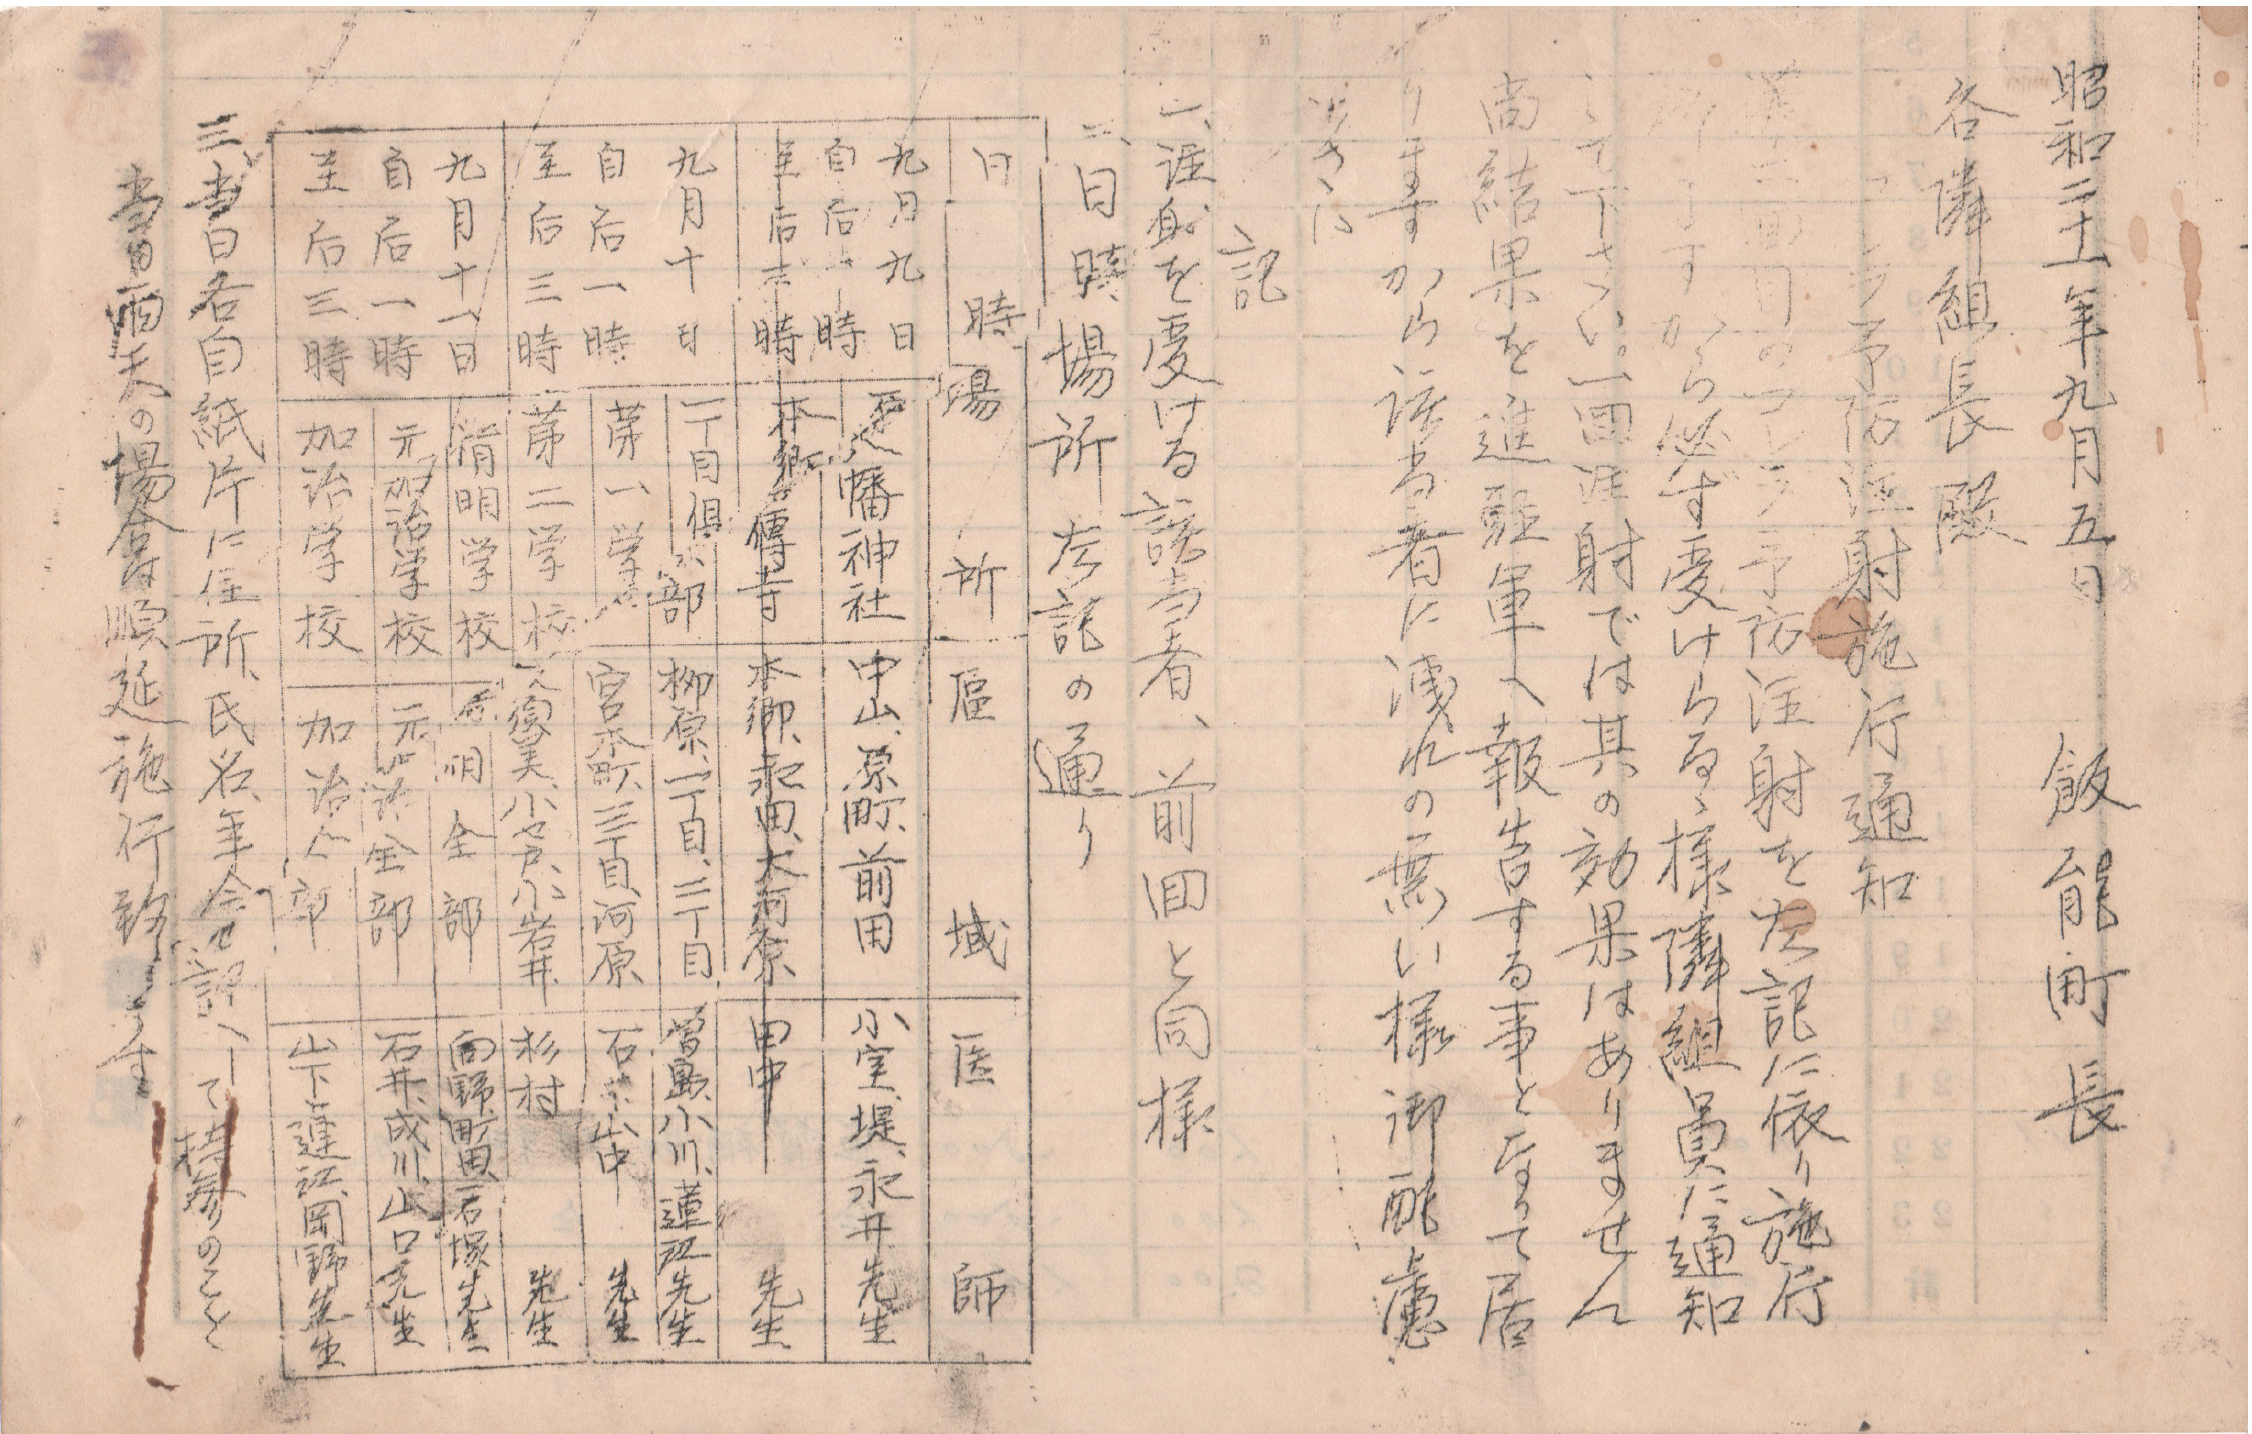 昭和二十一年九月五日
飯能町長
各隣組長殿
コレラ予防注射施行通知
第二回目のコレラ予防注射を左記に依り施行
致しますから必ず受けらるゝ様隣組員に通知
して下さい。一回注射では其の効果はありません
尚結果を進駐軍へ報告する事となって居
りますから該当者に洩れの無い様御配慮
記
一、注射を受ける該当者、前回と同様
二、日時場所左記の通り
日時 場所 区域 医師
九月九日 自后一時 至后三時
八幡神社 中山、原町、前田 小室、堤、永井先生
本郷 傳寺 本郷、永田、大河原 田中先生
九月十日 自后一時 至后三時
一丁目倶楽部 柳原、一丁目、二丁目 曽島、小川、蓮江先生
第一学校 宮本町、三丁目、河原 石井、山中先生
第二学校 久須美、小瀬戸、小岩井 杉村先生
九月十一日 自后一時 至后三時
精明学校 精明全部 向野、町田、石塚先生
元加治学校 元加治全部 石井、成川、山口先生
加治学校 加治全部 山下、蓮江、岡野先生
三、当日各自紙片に住所、氏名、年令を記入して持参のこと
当日雨天の場合は順延施行致します